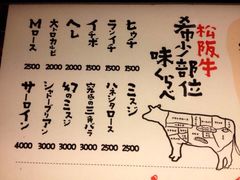 松阪牛
希少部位
味くらべ
ヒウチ
2500
ランイチ
2500
イチボ
2000
ヘレ
大トロカルビ
Mロース
2500
ミスジ
2500
ハネシタロース
2500
究極の三角バラ
3000
幻のミスジ
3000
シャトーブリアン
3000
サーロイン
4000